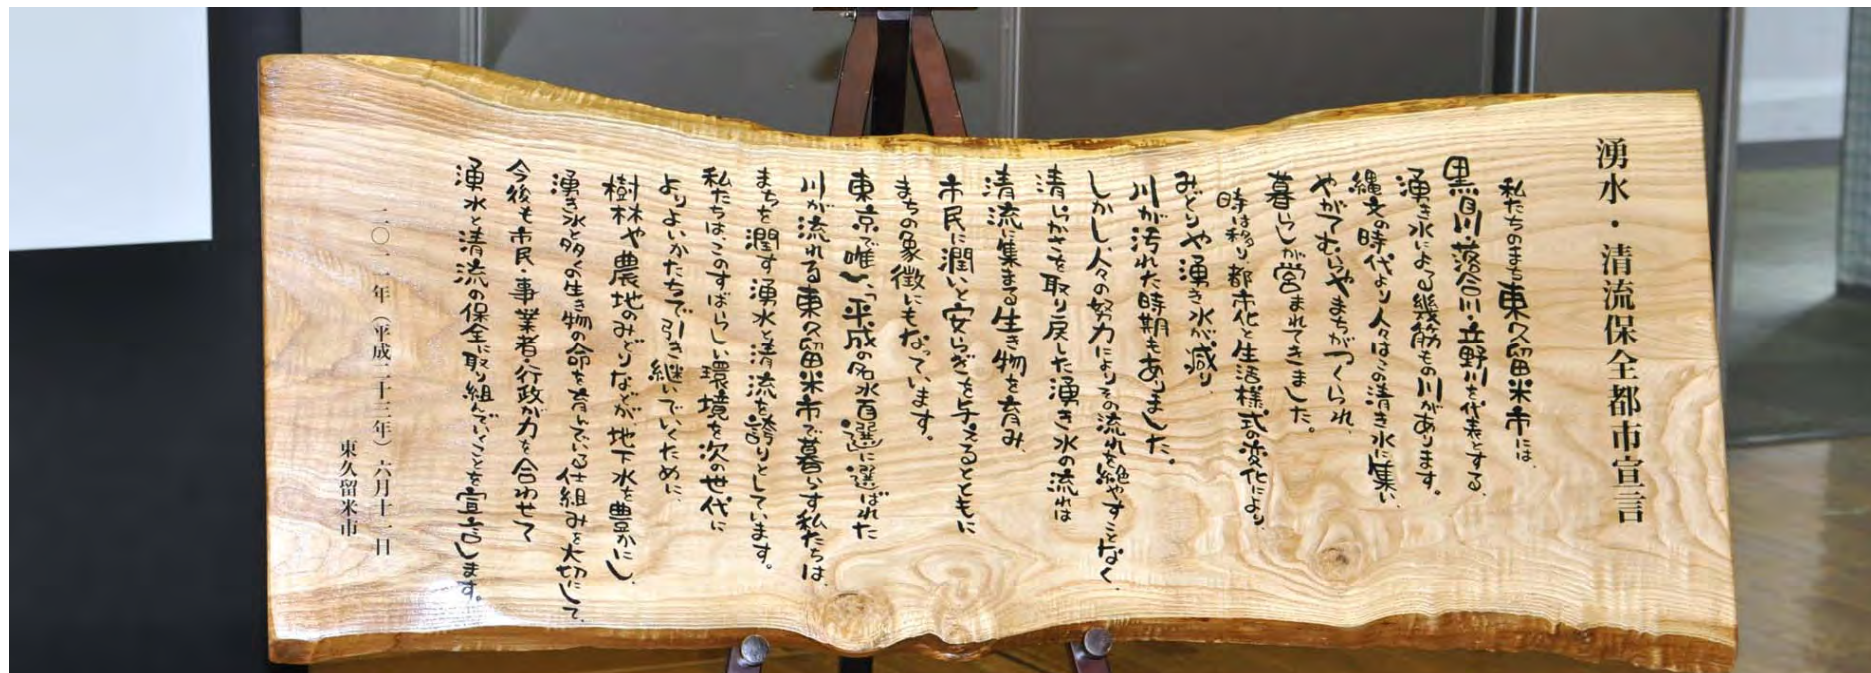 湧水・清流保全都市宣言
私たちのまち東久留米市には、
黒目川、落合川、立野川を代表とする、
湧き水による幾筋もの川があります。
縄文の時代より人々はこの清き水に集い、
やがてむらやまちがつくられ、
暮らしが営まれてきました。
時は移り都市化と生活様式の変化により、
みどりや湧き水が減り、
川が汚れた時期もありました。
しかし、人々の努力によりその流れを絶やすことなく、
清らかさを取り戻した湧き水の流れは
清流に集まる生き物を育み、
市民に潤いと安らぎを与えるとともに
まちの象徴にもなっています。
東京で唯一、「平成の名水百選」に選ばれた
川が流れる東久留米市で暮らす私たちは、
まちを潤す湧水と清流を誇りとしています。
私たちはこのすばらしい環境を次の世代に
よりよいかたちで引き継いでいくために、
樹林や農地のみどりなどが地下水を豊かにし、
湧き水が多くの生き物の命を育んでいる仕組みを大切にして、
今後も市民・事業者・行政が力を合わせて
湧水と清流の保全に取り組んでいくことを宣言します。
二〇一一年（平成二十三年）六月十一日
東久留米市